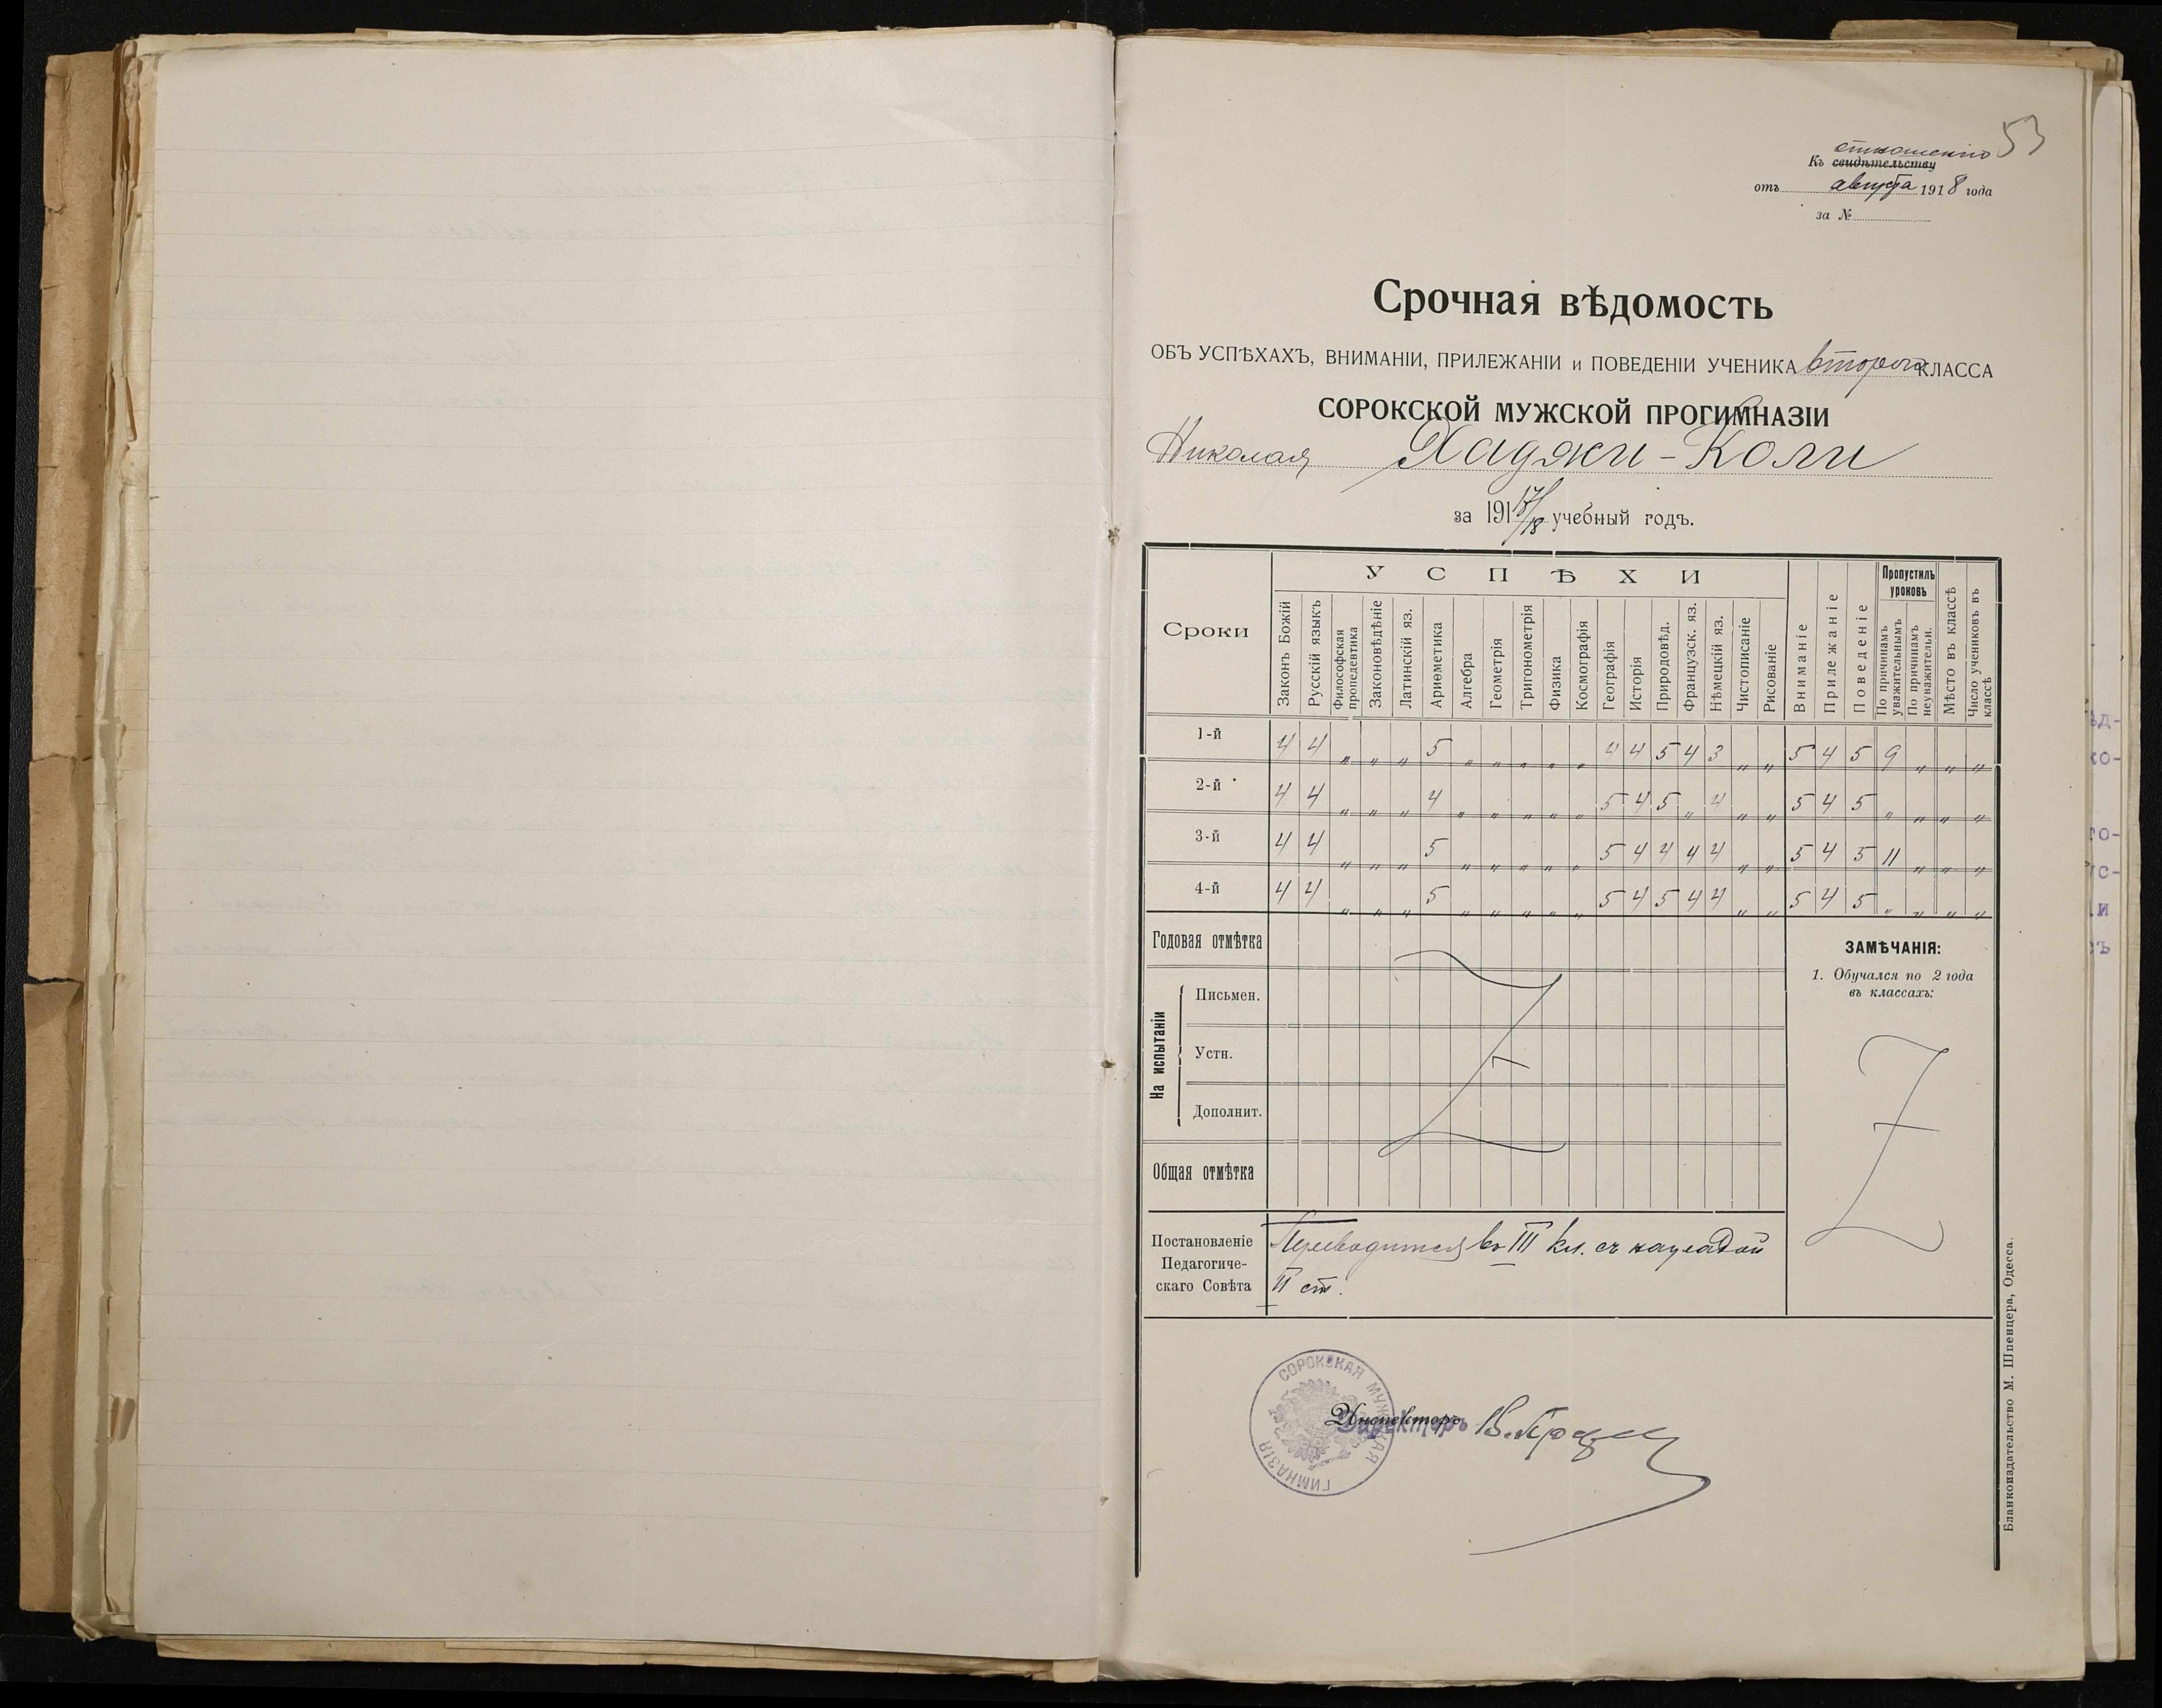 53
отношенію
Къ свидѣтельству
отъ августа 1918 года
за №
Срочная вѣдомость
ОБЪ УСПѢХАХЪ, ВНИМАНІИ, ПРИЛЕЖАНІИ и ПОВЕДЕНІИ УЧЕНИКА второго КЛАССА
СОРОКСКОЙ МУЖСКОЙ ПРОГИМНАЗІИ
Николая Хаджи-Коли
за 1917/18 учебный годъ.
Сроки
У С П Ѣ Х И
Законъ Божій
Русскій языкъ
Философская пропедевтика
Законовѣдѣніе
Латинскій яз.
Ариѳметика
Алгебра
Геометрія
Тригонометрія
Физика
Космографія
Географія
Исторія
Природовѣд.
Французск. яз.
Нѣмецкій яз.
Чистописаніе
Рисованіе
Вниманіе
Прилежаніе
Поведеніе
Пропустилъ уроковъ
По причинамъ уважительнымъ
По причинамъ неуважительн.
Мѣсто въ классѣ
Число учениковъ въ классѣ
1-й 4 4 „ „ „ 5 „ „ „ „ „ 4 4 5 4 3 „ „ 5 4 5 9 „ „ „
2-й 4 4 „ „ „ 4 „ „ „ „ „ 5 4 5 „ 4 „ „ 5 4 5 „ „ „ „
3-й 4 4 „ „ „ 5 „ „ „ „ „ 5 4 4 4 4 „ „ 5 4 5 11 „ „ „
4-й 4 4 „ „ „ 5 „ „ „ „ „ 5 4 5 4 4 „ „ 5 4 5 „ „ „ „
Годовая отмѣтка
На испытаніи
Письмен.
Устн.
Дополнит.
Общая отмѣтка
ЗАМѢЧАНІЯ:
1. Обучался по 2 года
въ классахъ:
Постановленіе
Педагогиче-
скаго Совѣта
Переводится въ III кл. съ наградой
II ст.
СОРОКСКАЯ МУЖСКАЯ ГИМНАЗІЯ
Инспекторъ
Директоръ
Бланкоиздательство М. Шпенцера, Одесса.